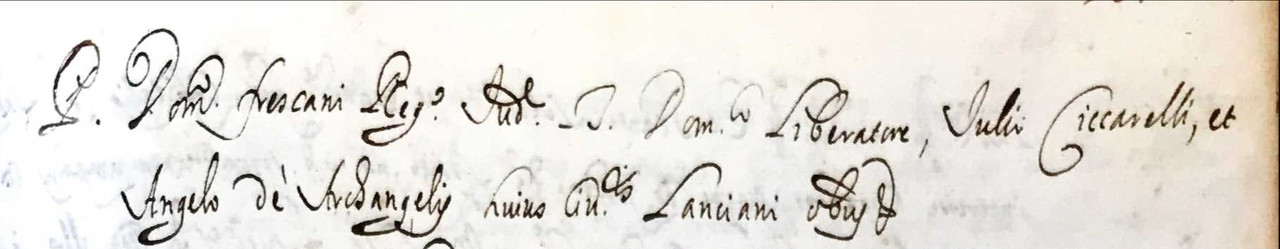 P. Dom. frescani Reg.º Jud.e T. Dom.co Liberatore, Julii Ciccarelli, et
Angelo dè Archangelis huius Civ.tis Lanciani